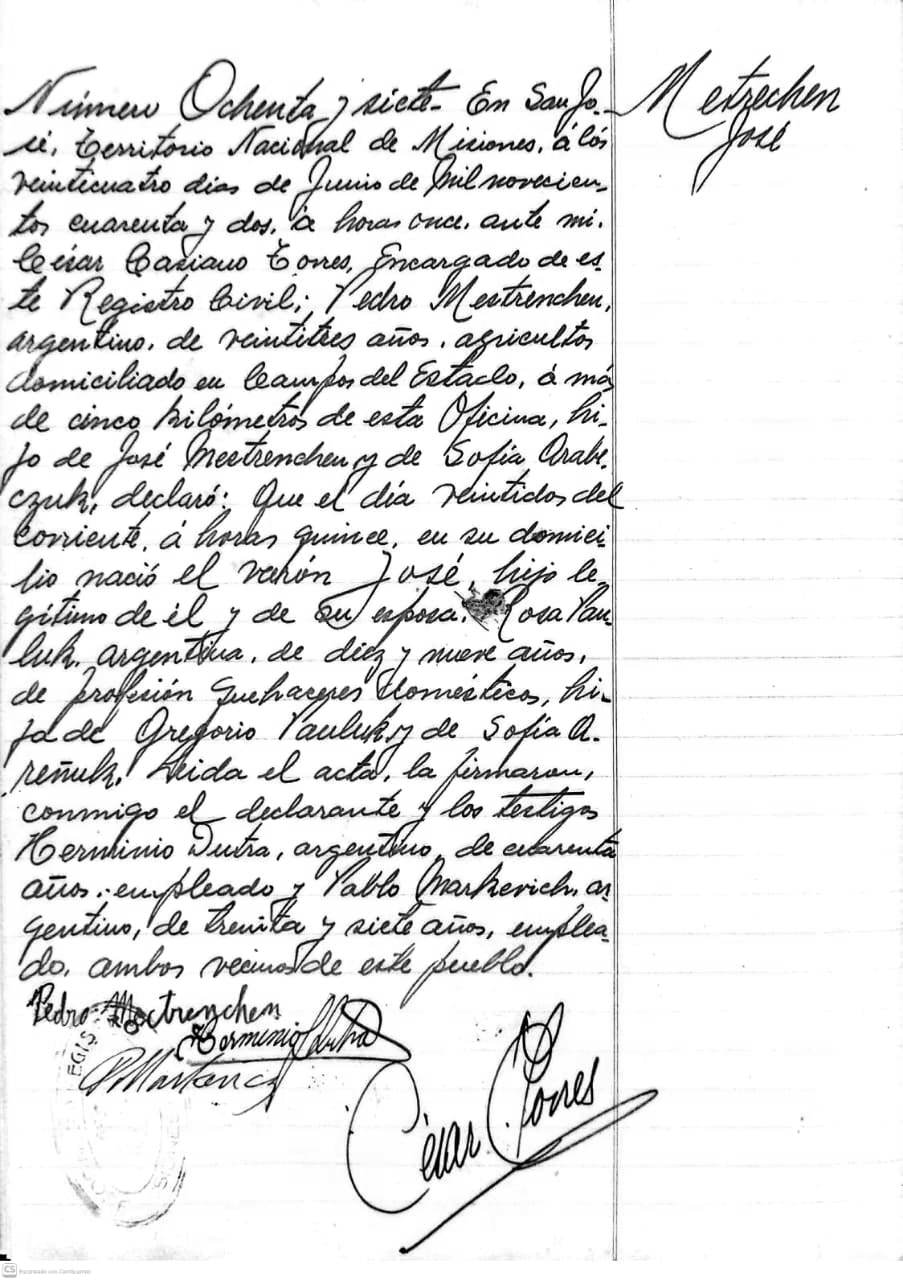 Número Ochenta y siete. En San Jo-
sé, Territorio Nacional de Misiones, á los
veinticuatro dias de Junio de Mil novecien-
tos cuarenta y dos, á horas once, ante mi.
César Casiano Torres, Encargado de es-
te Registro Civil; Pedro Mestrenchen,
argentino, de veintitres años, agricultor
domiciliado en Campos del Estado, á más
de cinco kilómetros de esta Oficina, hi-
jo de José Mestrenchen y de Sofía Arabe-
czuk, declaró: Que el día veintidos del
corriente, á horas quince, en su domici-
lio nació el varón José, hijo le-
gítimo de él y de su esposa, Rosa Pau-
luk, argentina, de diez y nueve años,
de profesión quehaceres domésticos, hi-
ja de Gregorio Pauluk y de Sofía A.
reñuk. Leida el acta, la firmaron,
conmigo el declarante y los testigos
Herminio Dutra, argentino, de cuarenta
años, empleado y Pablo Markevich, ar-
gentino, de treinta y siete años, emplea-
do, ambos vecinos de este pueblo.
Mestrechen
José
Pedro Mectrenchen
Herminio Dutra
César C Torres
REGIS
CS Escaneado con CamScanner